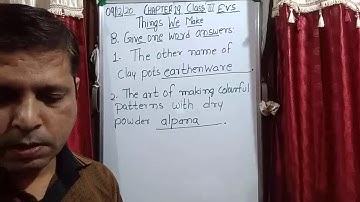 09/12/20 CHAPTER 19 Class III EVS
Things We Make
B. Give one word answers:
1- The other name of
clay pots earthenware.
2- The art of making colourful
patterns with dry
powder alpana.